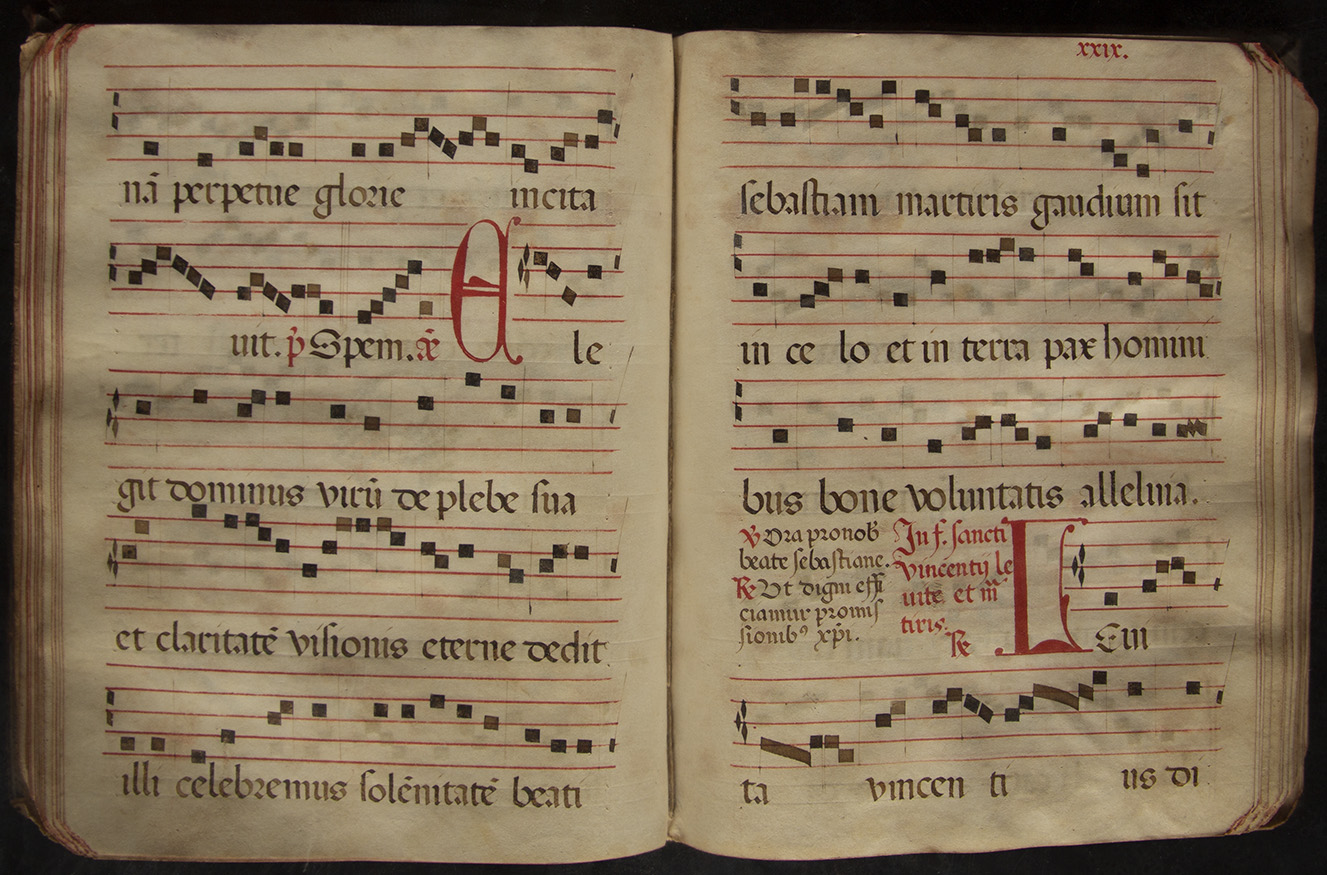 nā perpetue glorie incita
uit. p̄ Spem. ā E le
git dominus virū de plebe sua
et claritatē visionis eterne dedit
illi celebremus solēnitatē beati
xxix.
sebastiani martiris gaudium sit
in ce lo et in terra pax homini
bus bone voluntatis alleluia.
℣ Ora pro nob̄
beate sebastiane.
℟ Ut digni effi
ciamur promis
sionibꝰ xp̄i.
In f. sancti
vincentij le
uite et m̄
tiris.
℟
L Eui
ta vincen ti us di